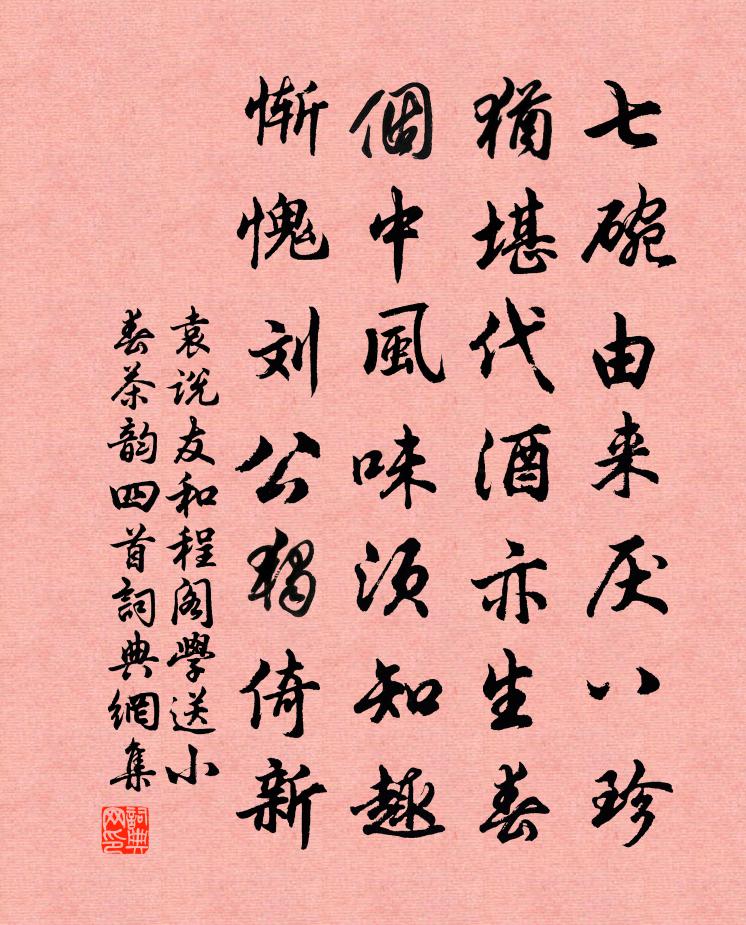 七碗由来厌八珍
犹堪代酒亦生春
個中風味须知趣
惭愧刘公独倚新
袁说友和程阁學送小
春茶韵四首詞典網集
詞典网印